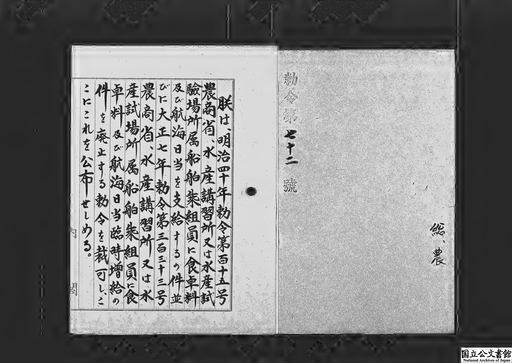 勅令第七十二號
総、農
朕は、明治四十年勅令第百十五号
農商省、水産講習所又は水産試
驗場所属船舶乘組員に食卓料
及び航海日当を支給するの件並
びに大正七年勅令第三百三十三号
農商省、水産講習所又は水
産試場所属船舶乘組員に食
卓料及び航海日当臨時増給の
件を廃止する勅令を裁可し、こ
こにこれを公布せしめる。
内閣
国立公文書館
National Archives of Japan